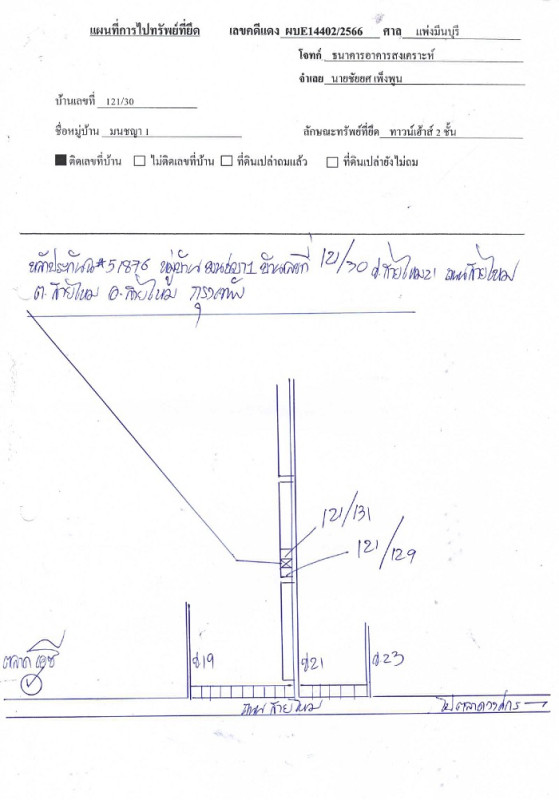 แผนที่การไปทรัพย์ที่ยึด เลขคดีแดง ผบE14402/2566 ศาล แพ่งมีนบุรี
โจทก์ ธนาคารอาคารสงเคราะห์
จำเลย นายชัยยศ เพ็งพูน
บ้านเลขที่ 121/30
ชื่อหมู่บ้าน มนชญา 1 ลักษณะทรัพย์ที่ยึด ทาวน์เฮ้าส์ 2 ชั้น
ติดเลขที่บ้าน ไม่ติดเลขที่บ้าน ที่ดินเปล่าถมแล้ว ที่ดินเปล่ายังไม่ถม
หลักประกัน #51876 หมู่บ้าน บ้านเลขที่ 121/30 ซ.สายไหม21 ถนนสายไหม
ต.สายไหม อ.สายไหม กรุงเทพฯ
121/131
121/129
ตลาด
ซ19 ซ21 ซ23
ถนน สายไหม